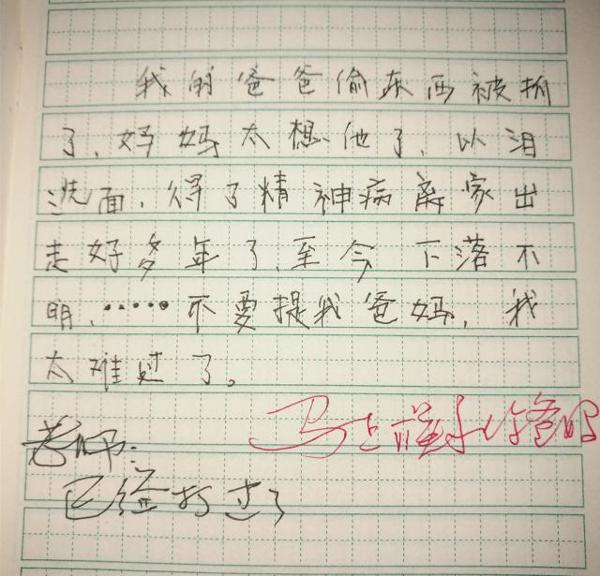 我的爸爸偷东西被抓
了，妈妈太想他了，以泪
洗面，得了精神病离家出
走好多年了，至今下落不
明，……不要提我爸妈，我
太难过了。
马上
爸
老师：
已经打过了